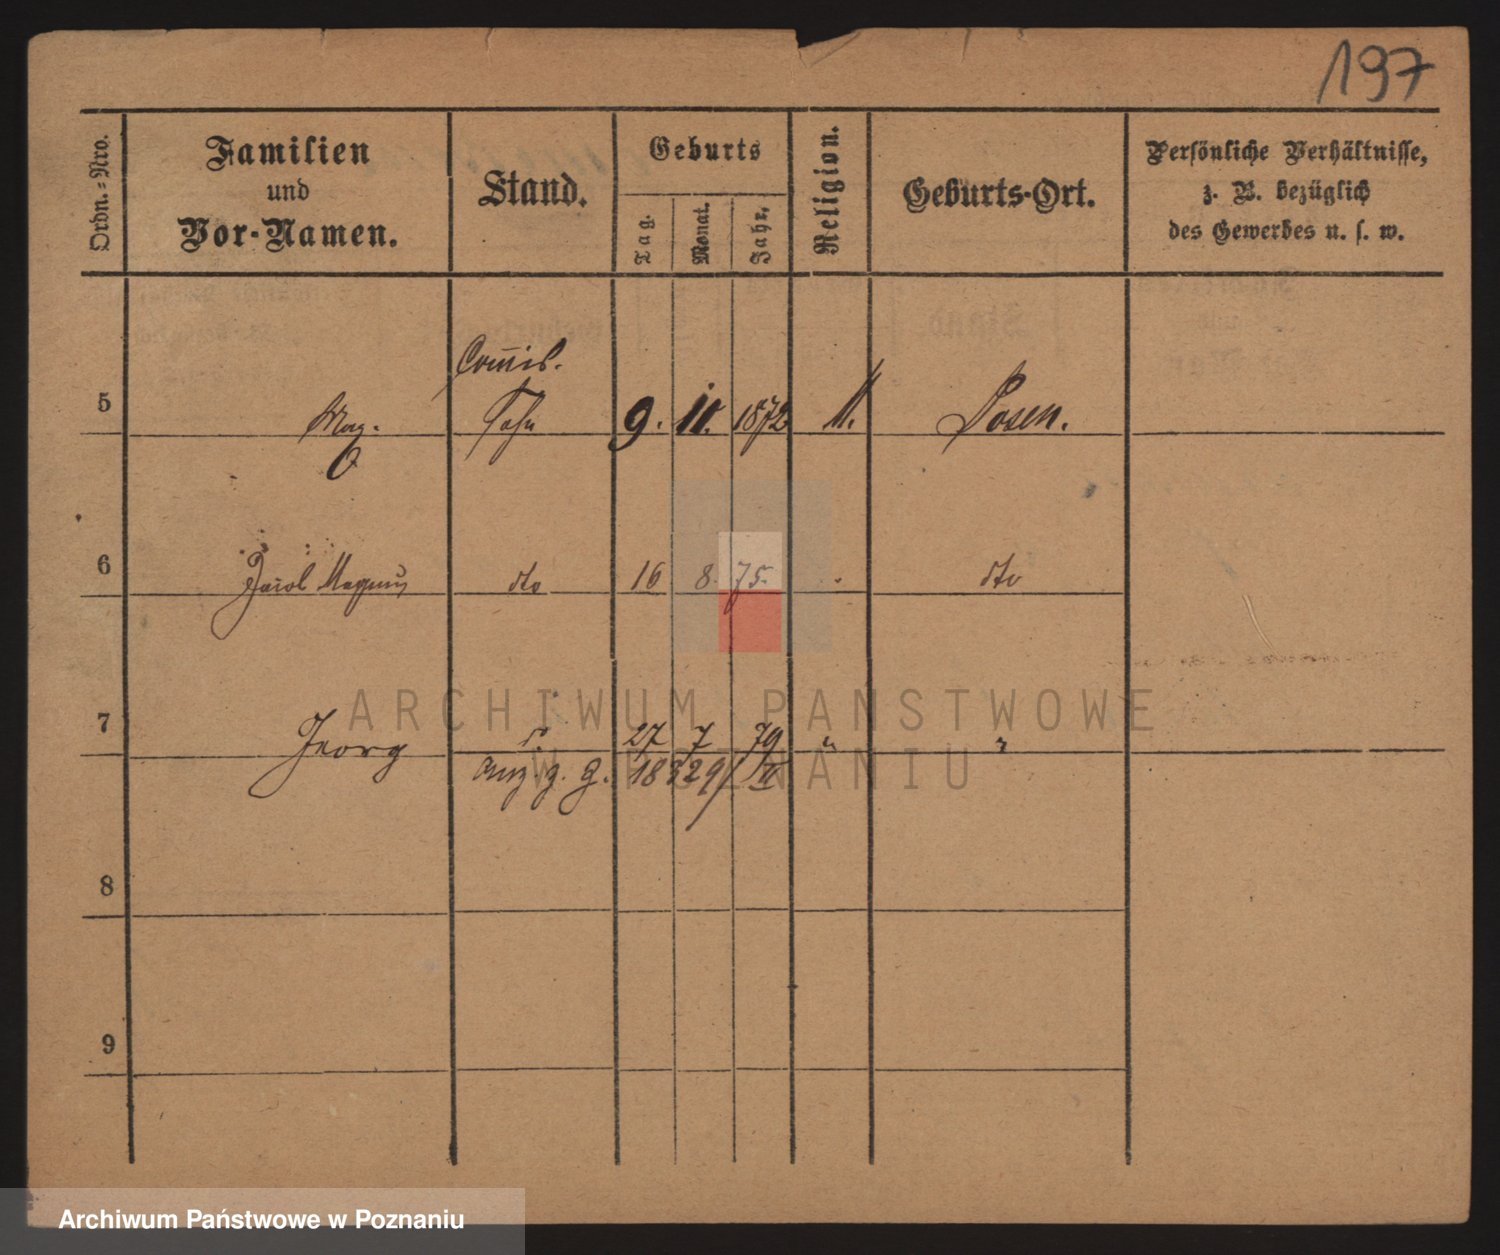 197
Ordn.-Nro.
Familien
und
Vor-Namen.
Stand.
Geburts
Tag.
Monat.
Jahr.
Religion.
Geburts-Ort.
Persönliche Verhältnisse,
z. B. bezüglich
des Gewerbes u. s. w.
Commis.
5 Max. Sohn 9. 11. 1872 M. Posen.
6 Jacob Magnus dto 16 8. 75. dto
7 Georg 27 7 79 "
8
9
ARCHIWUM PAŃSTWOWE
W POZNANIU
Archiwum Państwowe w Poznaniu